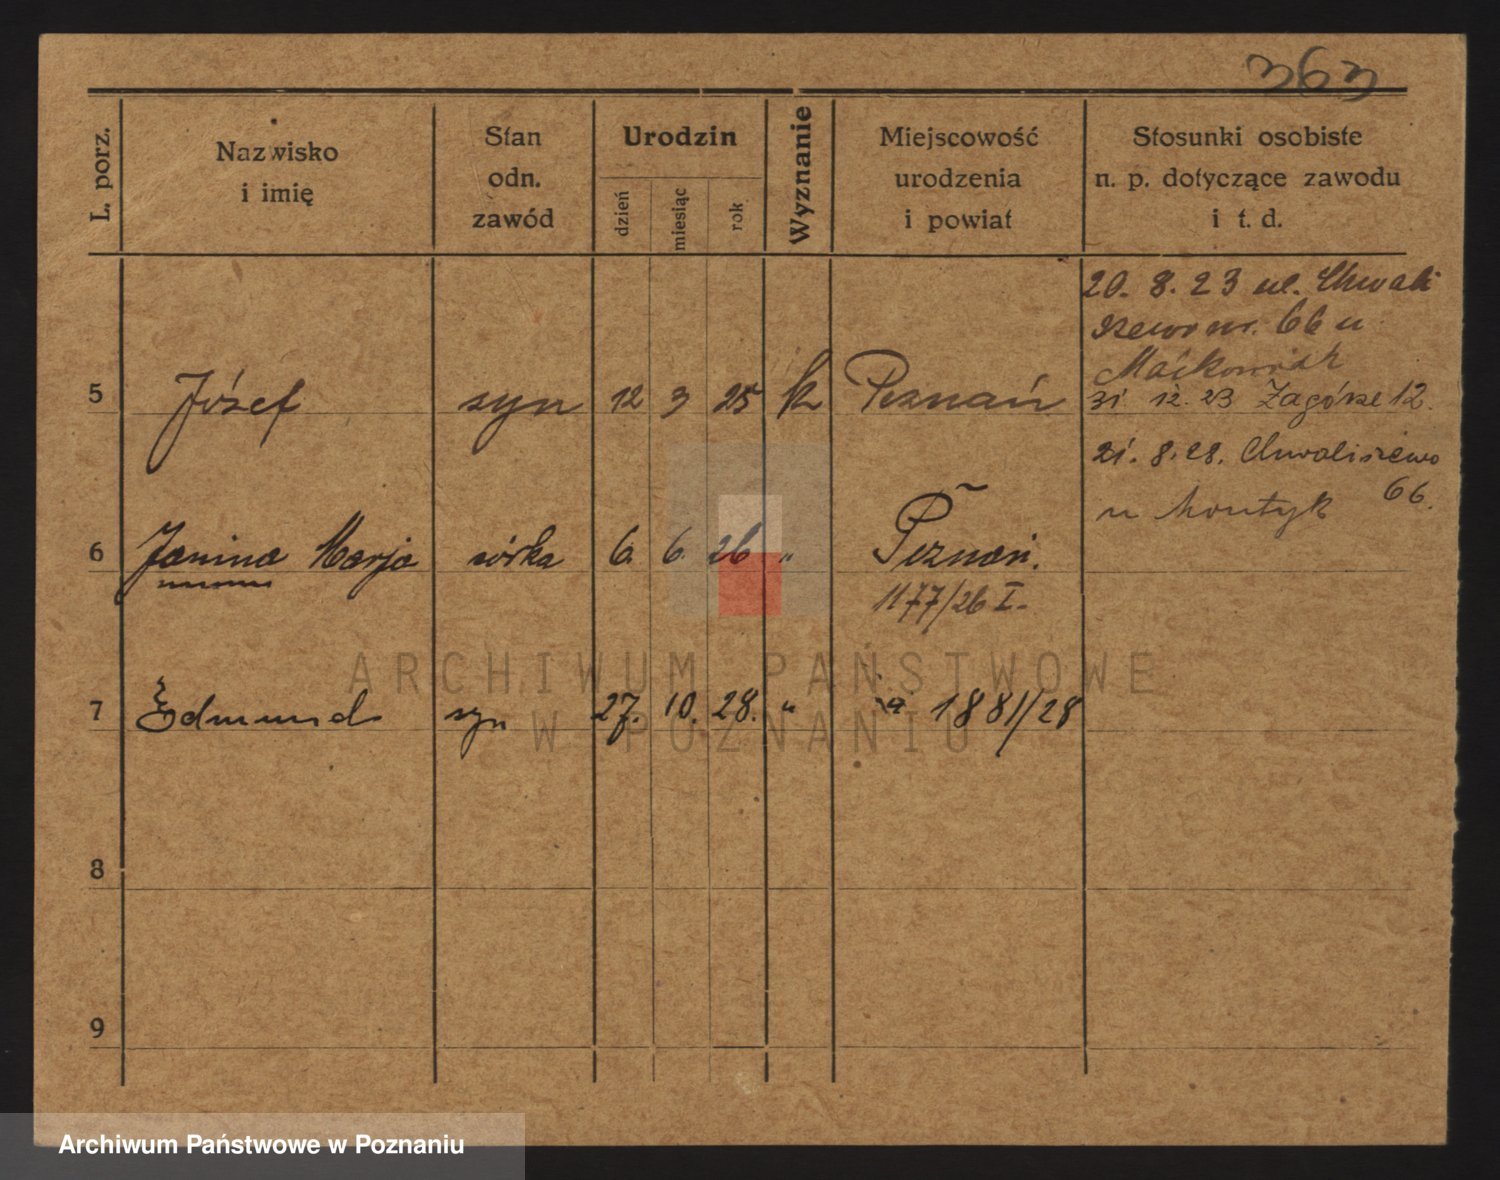 363
L. porz.
Nazwisko
i imię
Stan
odn.
zawód
Urodzin
dzień
miesiąc
rok
Wyznanie
Miejscowość
urodzenia
i powiat
Stosunki osobiste
n. p. dotyczące zawodu
i t. d.
20. 8. 23 ul. Chwali
szewo nr. 66 u
Maćkowiak
31. 12. 23 Zagórze 12.
21. 8. 28. Chwaliszewo
66.
u
5 Józef syn 12 3 25 k Poznań
6 Janina Marja córka 6. 6. 26 „ Poznań.
1177/26 I.
7 Edmund syn 27. 10. 28. „ 1881/28
8
9
ARCHIWUM PAŃSTWOWE
W POZNANIU
Archiwum Państwowe w Poznaniu